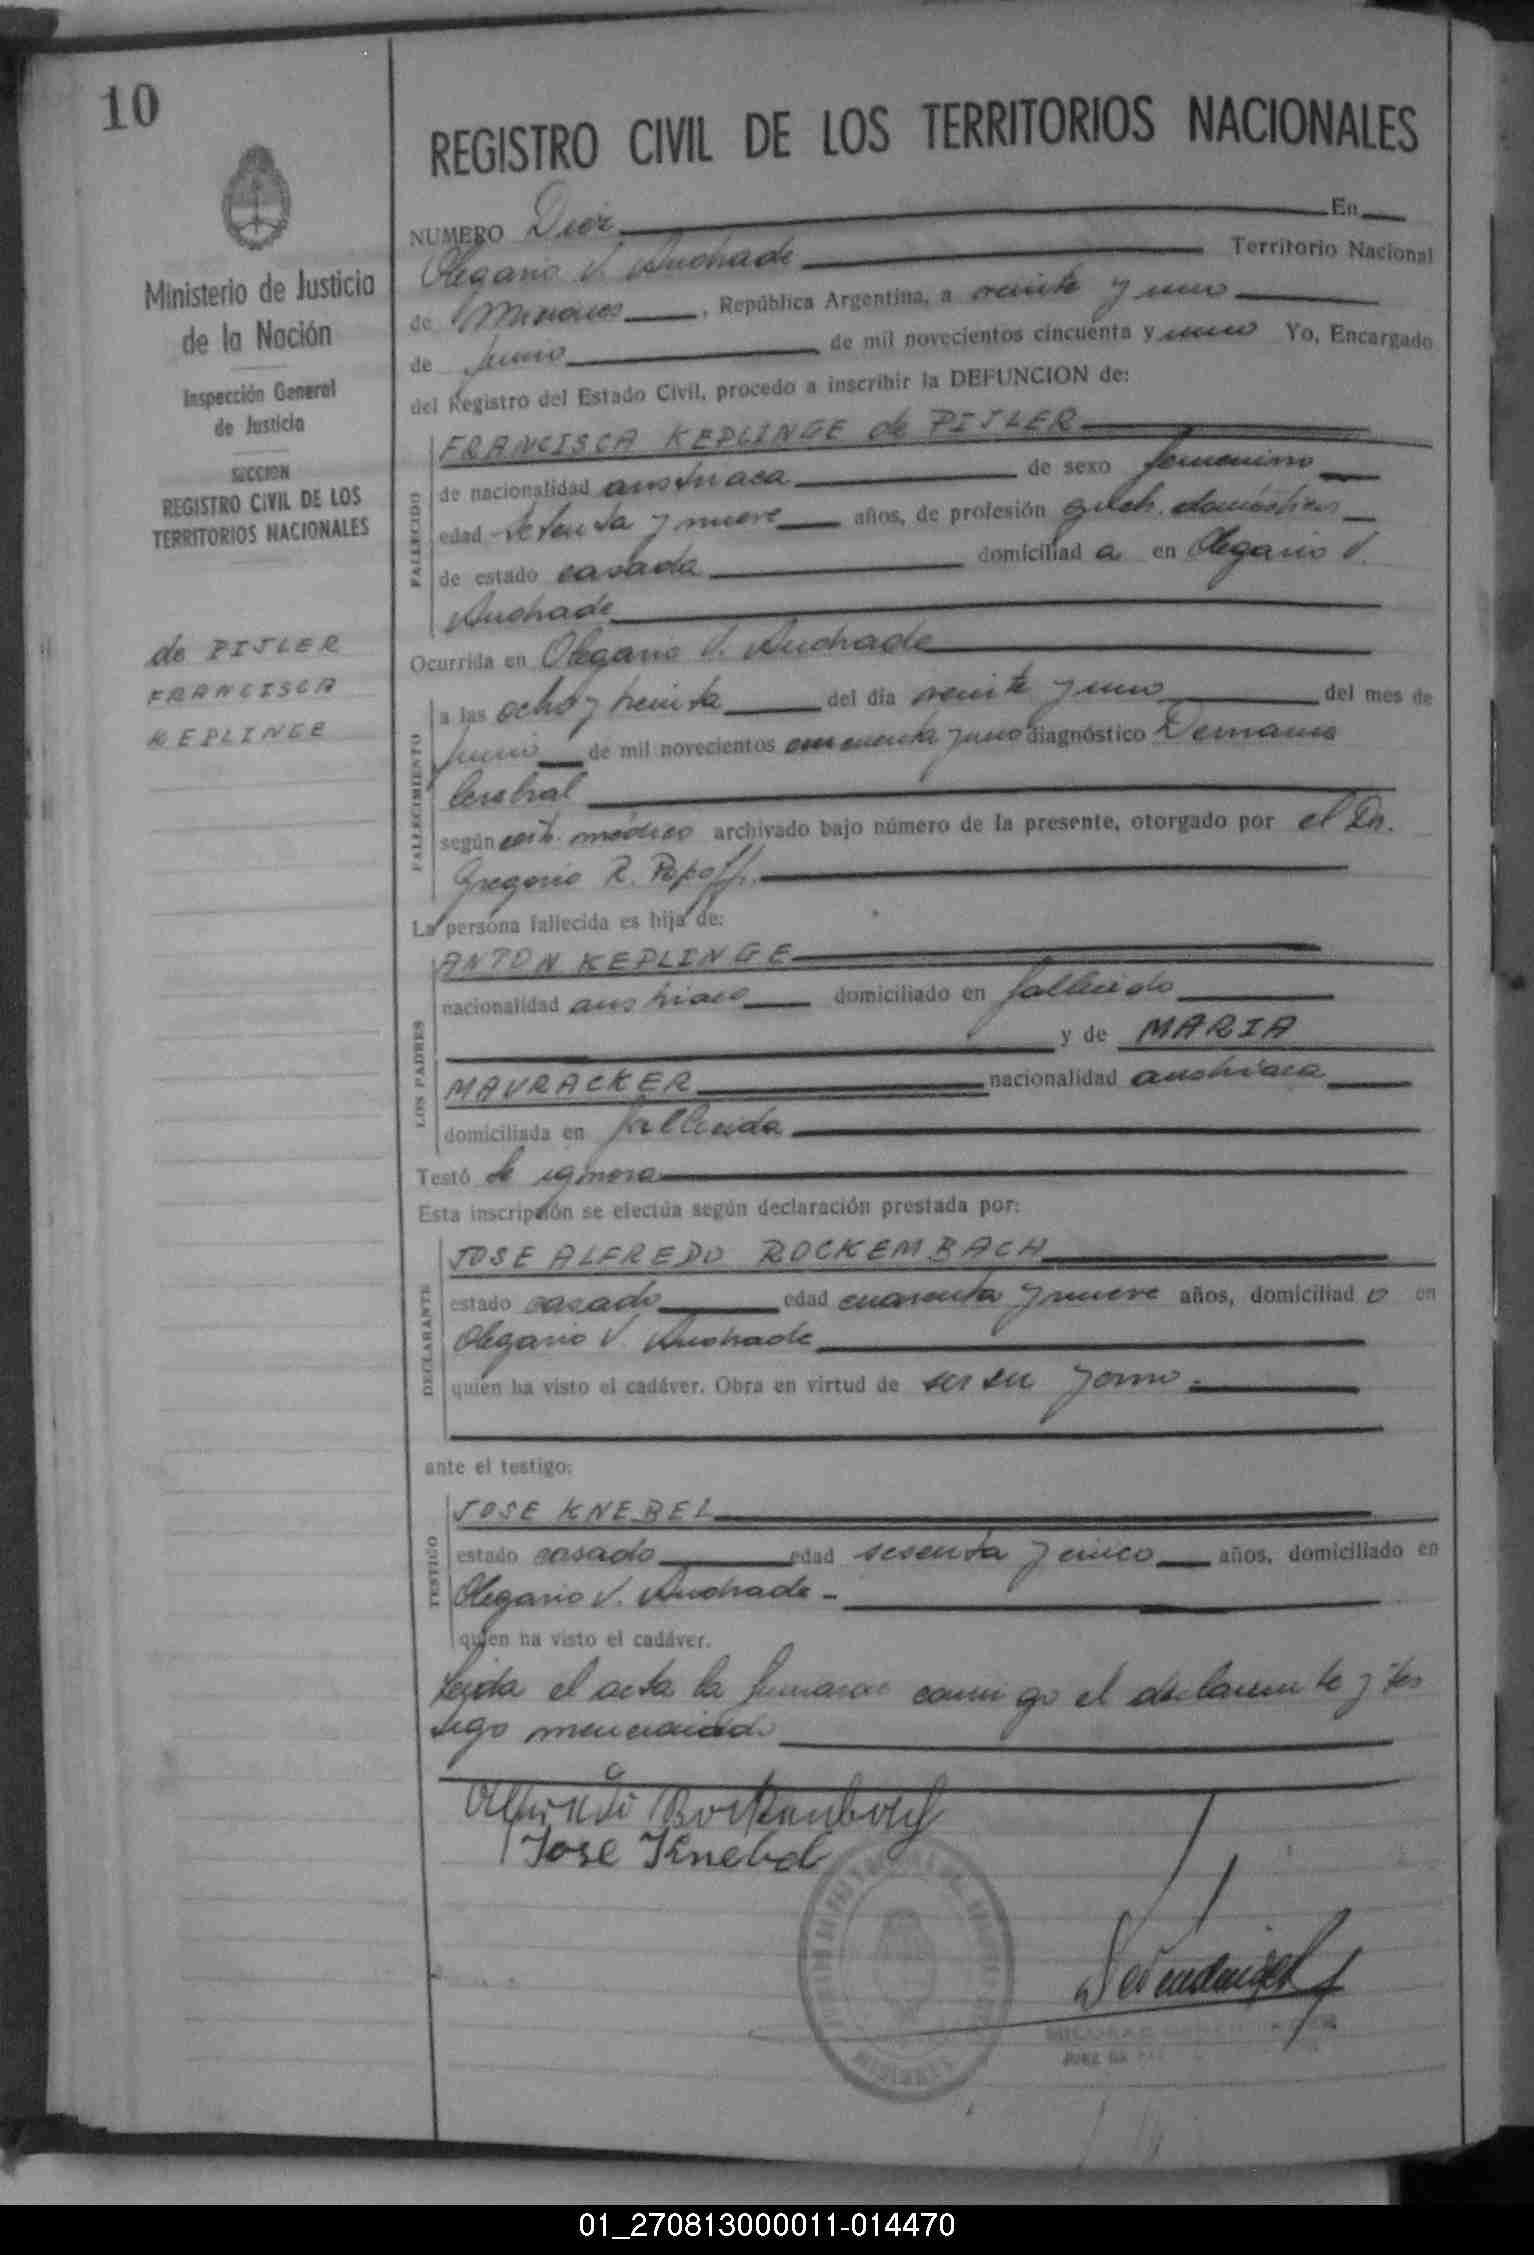 10
Ministerio de Justicia
de la Nación
Inspección General
de Justicia
SECCION
REGISTRO CIVIL DE LOS
TERRITORIOS NACIONALES
de PIJLER
FRANCISCA
KEPLINGE
REGISTRO CIVIL DE LOS TERRITORIOS NACIONALES
NUMERO Diez En
Olegario V. Andrade Territorio Nacional
de Misiones, República Argentina, a veinte y uno
de junio de mil novecientos cincuenta y uno Yo, Encargado
del Registro del Estado Civil, procedo a inscribir la DEFUNCION de:
FALLECIDO
FRANCISCA KEPLINGE de PIJLER
de nacionalidad austriaca de sexo femenino
edad setenta y nueve años, de profesión queh. domésticos
de estado casada domiciliad a en Olegario V.
Andrade
Ocurrida en Olegario V. Andrade
FALLECIMIENTO
a las ocho y treinta del día veinte y uno del mes de
junio de mil novecientos cincuenta y uno diagnóstico Derrame
Cerebral
según cert. médico archivado bajo número de la presente, otorgado por el Dr.
Gregorio R. Popoff.
La persona fallecida es hija de:
LOS PADRES
ANTON KEPLINGE
nacionalidad austriaco domiciliado en fallecido
y de MARIA
MAURACKER nacionalidad austriaca
domiciliada en fallecida
Testó se ignora
Esta inscripción se efectúa según declaración prestada por:
DECLARANTE
JOSE ALFREDO ROCKEMBACH
estado casado edad cuarenta y nueve años, domiciliad o en
Olegario V. Andrade
quien ha visto el cadáver. Obra en virtud de ser su yerno.
ante el testigo:
TESTIGO
JOSE KNEBEL
estado casado edad sesenta y cinco años, domiciliado en
Olegario V. Andrade -
quien ha visto el cadáver.
Leida el acta la firmaron conmigo el declarante y tes
tigo mencionado
José Knebel
MISIONES
JUEZ DE PAZ
01_270813000011-014470